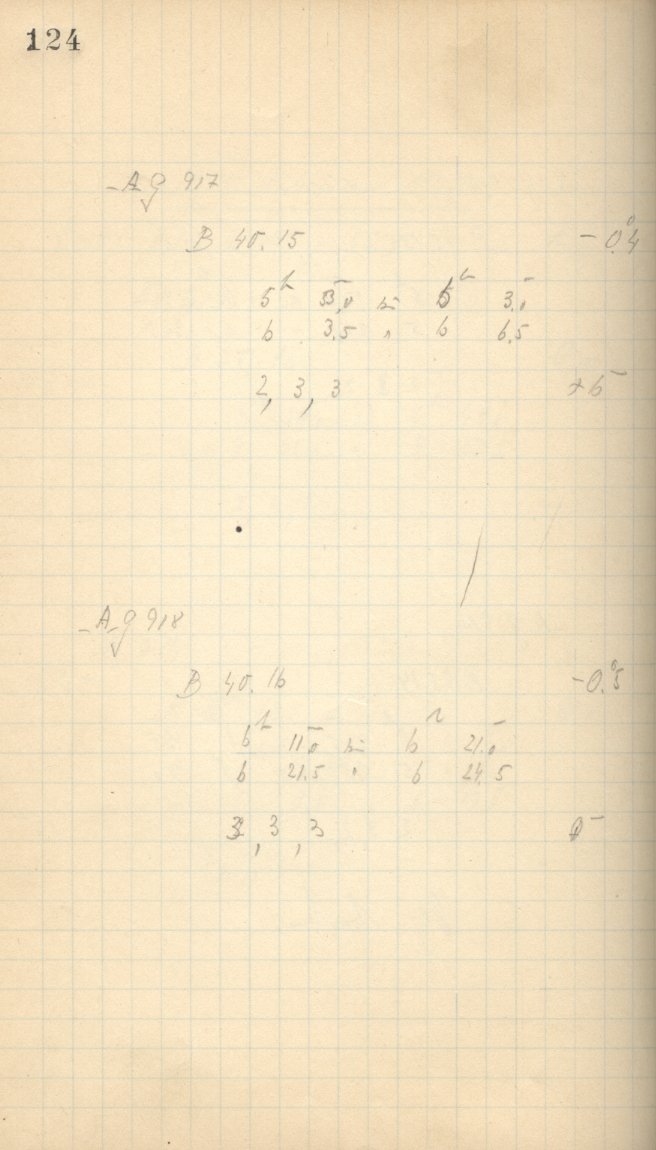 124
AG 917
B 40.15 -0°.4
5h 53m,0 bis 6h 3m.0
6 3.5 " 6 6.5
2, 3, 3 +6m
AG 918
B 40.16 -0°.5
6h 11m.0 bis 6h 21m.0
6 21.5 " 6 24.5
3, 3, 3